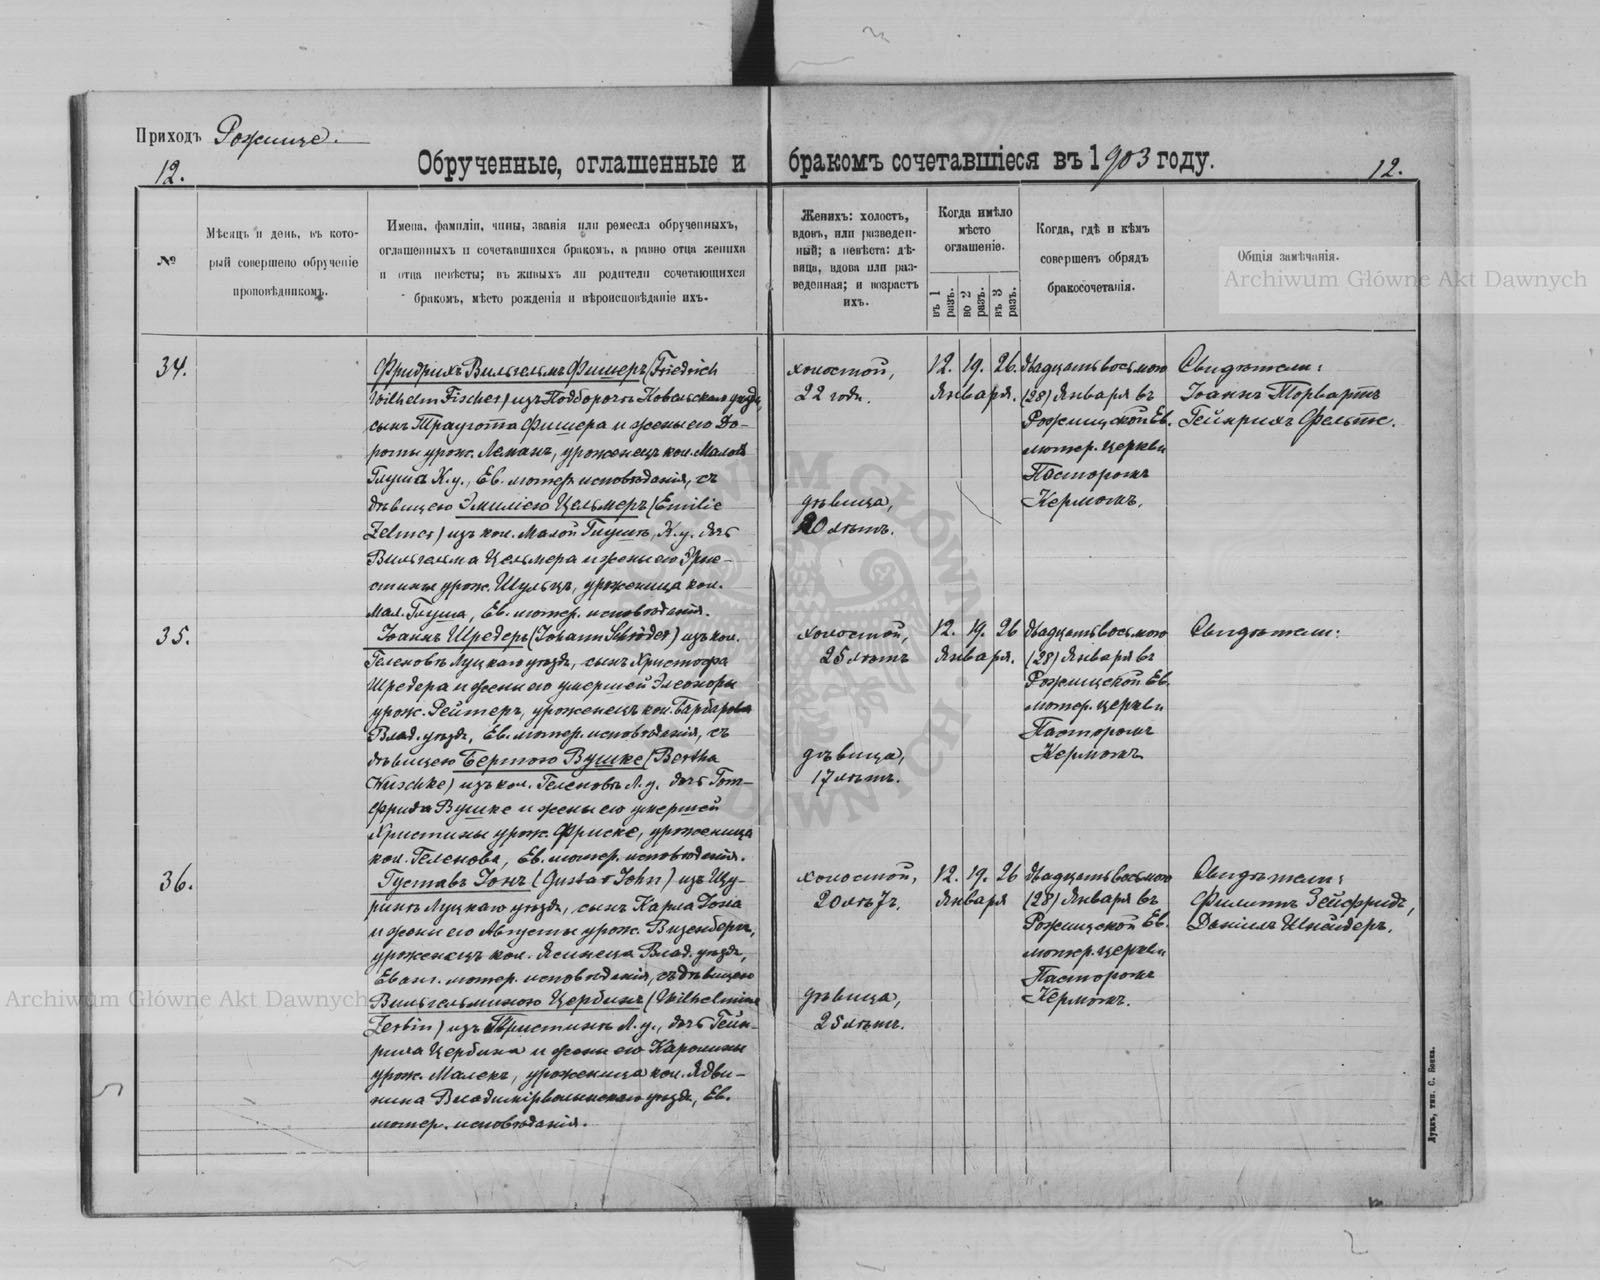 Приходъ Рожище.
12.
Обрученные, оглашенные и бракомъ сочетавшіеся въ 1903 году.
12.
№
Мѣсяцъ и день, въ кото-
рый совершено обрученіе
проповѣдникомъ.
Имена, фамиліи, чины, званія или ремесла обрученныхъ,
оглашенныхъ и сочетавшихся бракомъ, а равно отца жениха
и отца невѣсты; въ живыхъ ли родители сочетающихся
бракомъ, мѣсто рожденія и вѣроисповѣданіе ихъ.
Женихъ: холостъ,
вдовъ, или разведен-
ный; а невѣста: дѣ-
вица, вдова или раз-
веденная; и возрастъ
ихъ.
Когда имѣло
мѣсто
оглашеніе.
въ 1 разъ.
во 2 разъ.
въ 3 разъ.
Когда, гдѣ и кѣмъ
совершенъ обрядъ
бракосочетанія.
Общія замѣчанія.
Archiwum Główne Akt Dawnych
34.
Фридрихъ Вильгельмъ Фишеръ (Friedrich
Wilhelm Fischer) изъ Подборочъ Ковельскаго уѣзда,
сынъ Траугота Фишера и жены его До-
роты урож. Леманъ, уроженецъ кол. Малой
Глуша К. у., Ев. лютер. исповѣданія, съ
дѣвицею Эмиліею Цельмеръ (Emilie
Zelmer) изъ кол. Малой Глушѣ, К. у. дочь
Вильгельма Цельмера и жены его Хри-
стины урож. Шульцъ, уроженица кол.
Мал. Глуша, Ев. лютер. исповѣданія.
холостой,
22 года.
дѣвица,
20 лѣтъ.
12. 19. 26.
Января.
двадцать восьмого
(28) Января въ
Рожищской Ев.
лютер. церкви
Пасторомъ
Кермомъ.
Свидѣтели:
Іоаннъ Торвартъ
Гейнрихъ Фельтс.
35.
Іоаннъ Шредеръ (Johann Schröder) изъ кол.
Геленовъ Луцкаго уѣзда, сынъ Христофа
Шредера и жены его умершей Элеоноры
урож. Рейтеръ, уроженецъ кол. Барбарова
Влад. уѣзда, Ев. лютер. исповѣданія, съ
дѣвицею Бертою Вушке (Bertha
Wuschke) изъ кол. Геленовъ Л. у. дочь Гот-
фрида Вушке и жены его умершей
Христины урож. Фриске, уроженица
кол. Геленова, Ев. лютер. исповѣданія.
холостой,
25 лѣтъ
дѣвица,
17 лѣтъ.
12. 19. 26
Января.
двадцать восьмого
(28) Января въ
Рожищской Ев.
лютер. церкви
Пасторомъ
Кермомъ
Свидѣтели:
36.
Густавъ Іонъ (Gustav John) изъ Щу-
ринъ Луцкаго уѣзда, сынъ Карла Іона
и жены его Августы урож. Виценбергъ,
уроженецъ кол. Ясинеца Влад. уѣзда,
Еванг. лютер. исповѣданія, съ дѣвицею
Вильгельминою Цербинъ (Wilhelmine
Zerbin) изъ Тристинъ Л. у., дочь Гейн-
риха Цербина и жены его Каролины
урож. Малекъ, уроженица кол. Ядви-
нина Владимірволынскаго уѣзда, Ев.
лютер. исповѣданія.
холостой,
20 лѣтъ.
дѣвица,
25 лѣтъ.
12. 19. 26
Января
двадцать восьмого
(28) Января въ
Рожищской Ев.
лютер. церкви
Пасторомъ
Кермомъ.
Свидѣтели:
Филиппъ Зейфридъ,
Даніилъ Шнейдеръ.
Archiwum Główne Akt Dawnych
ARCHIWUM GŁÓWNE AKT DAWNYCH
Луцкъ, тип. С. Бонка.